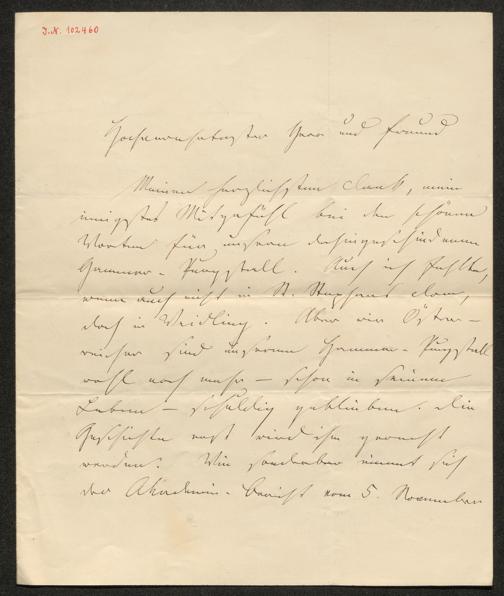 J.N. 102460
Hochverehrtester Herr und Freund
Meinen herzlichsten Dank, mein
innigstes Mitgefühl bei den schönen
Worten für unsern dahingeschiedenen
Hammer-Purgstall. Auch ich fehlte,
wenn auch nicht in St. Stephans Dom,
doch in Weidling. Aber wir Öster-
reicher sind unserem Hammer-Purgstall
wohl noch mehr – schon in seinem
Leben – schuldig geblieben. Die
Geschichte erst wird ihm gerecht
werden. Wie sonderbar nimmt sich
der Akademie-Bericht vom 5. November